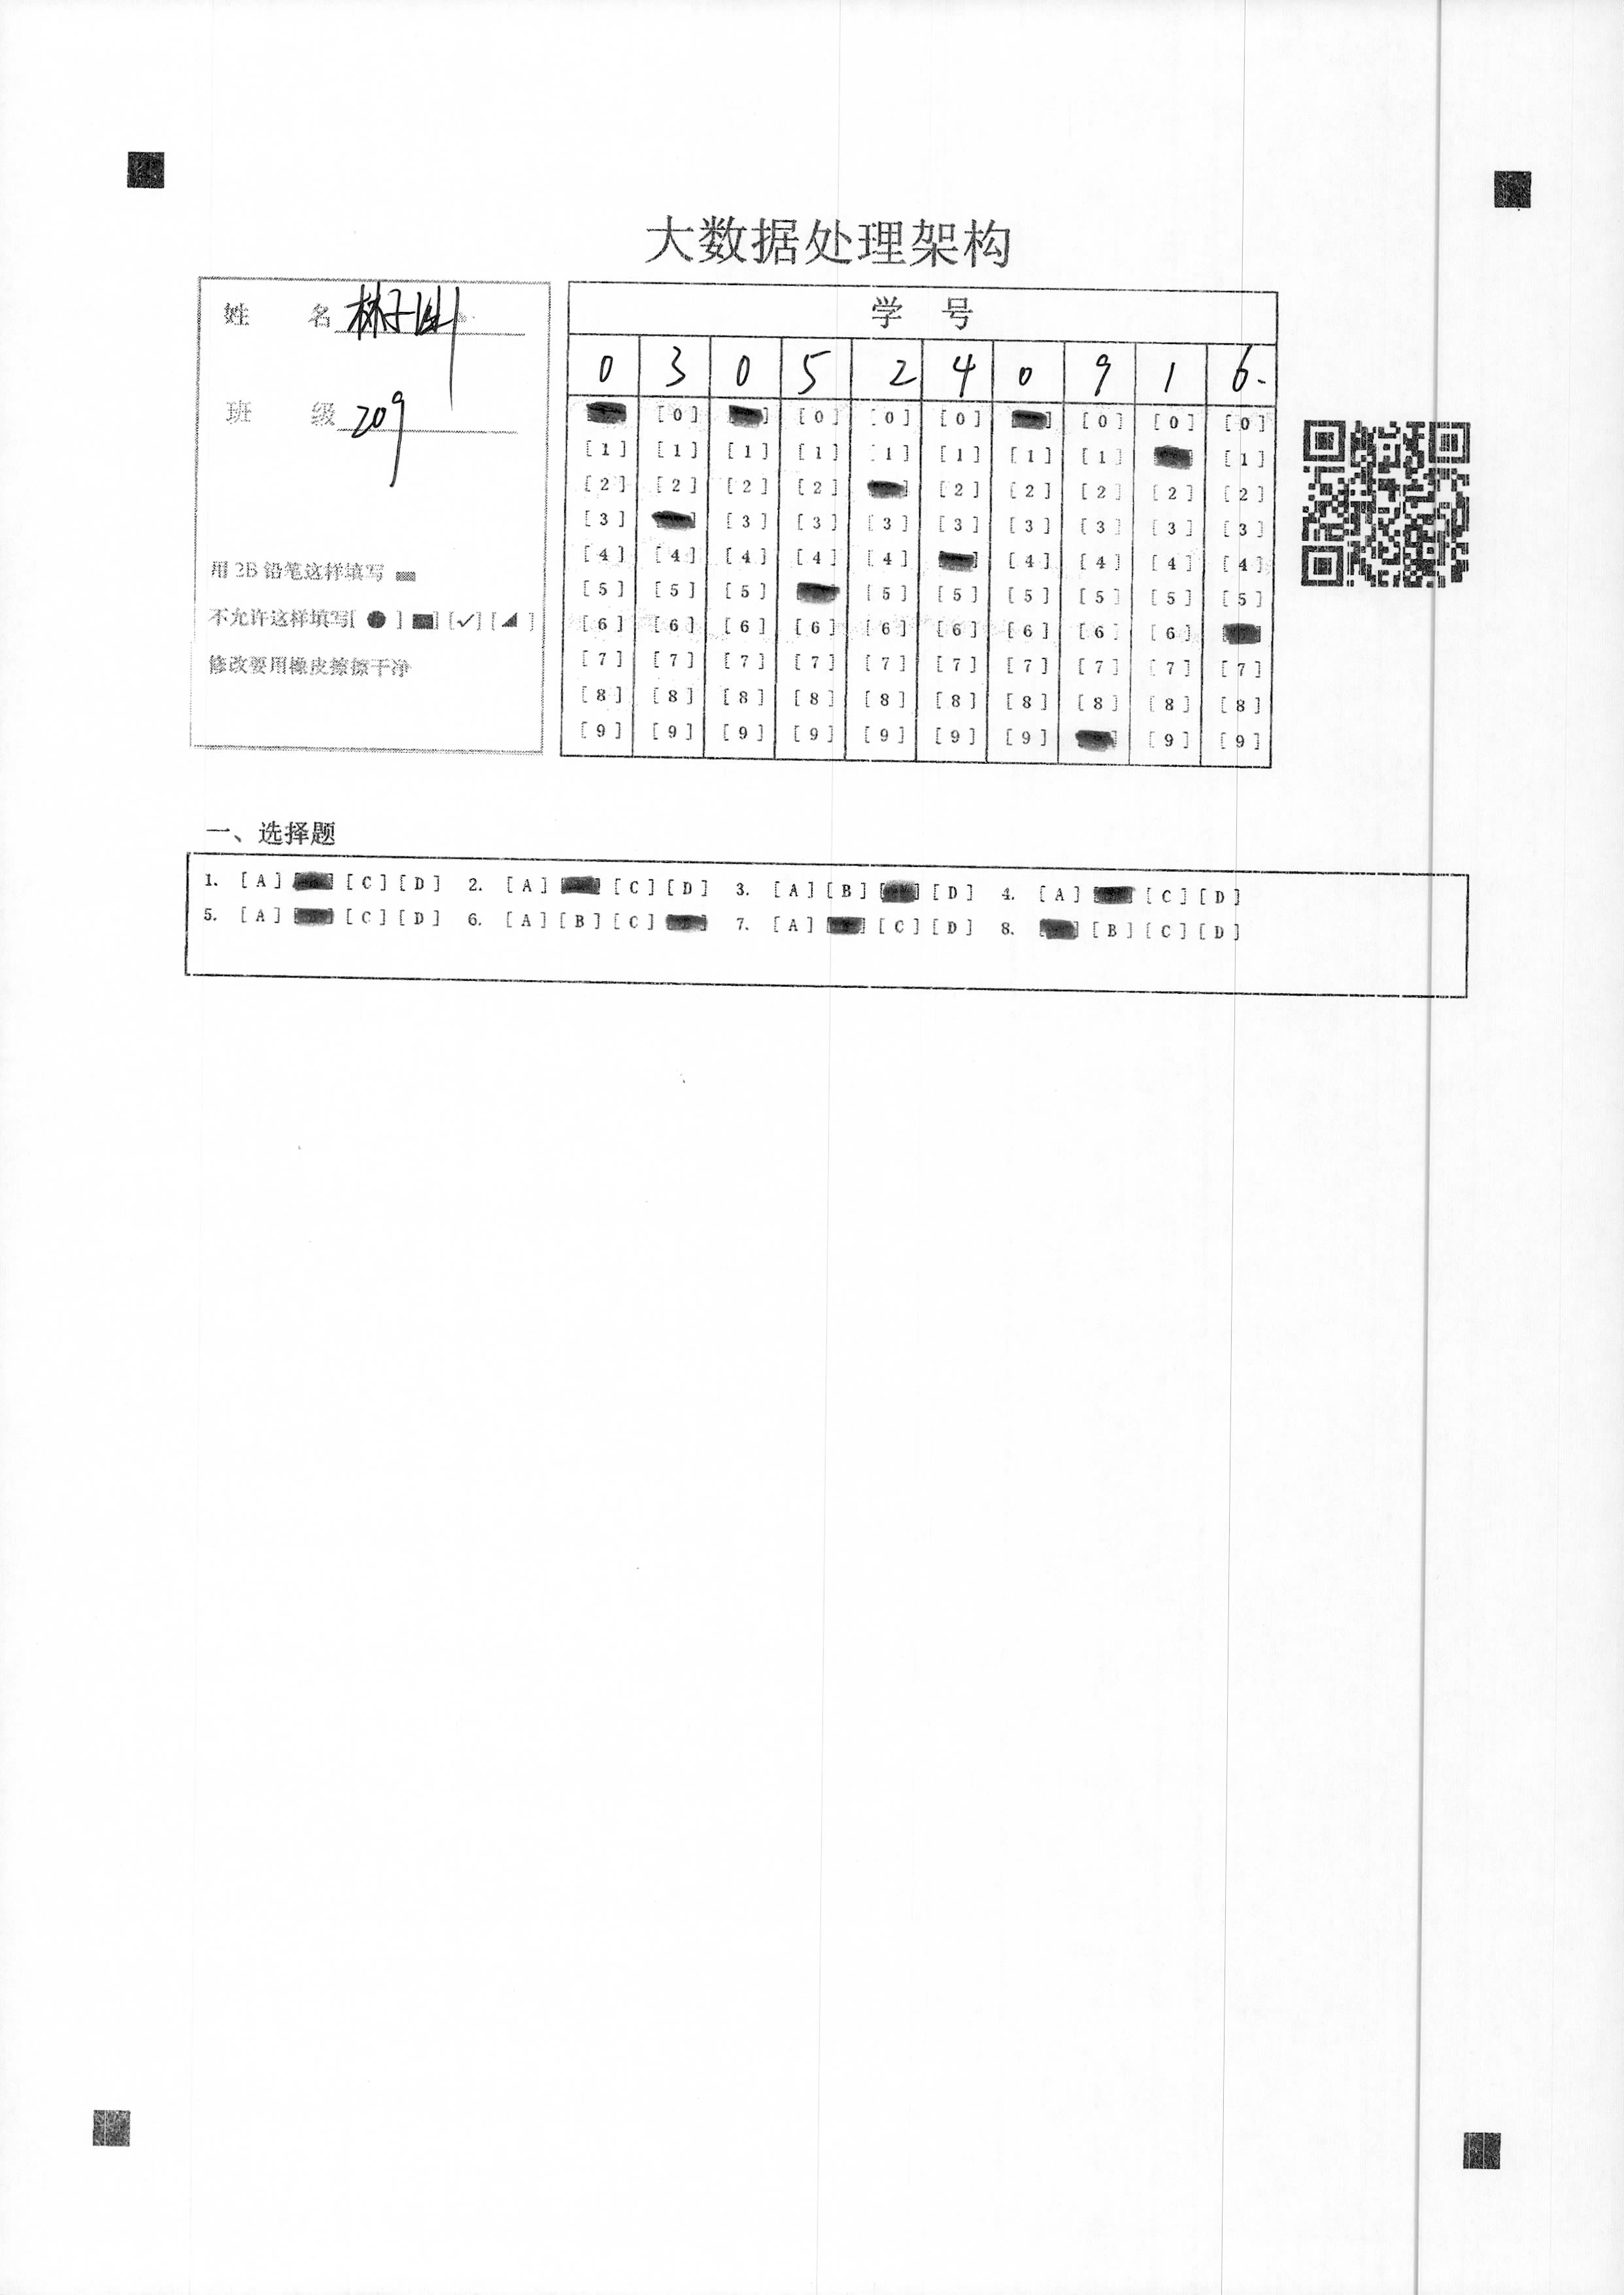 大数据处理架构
姓 名 林子
班 级 209
用 2B 铅笔这样填写
不允许这样填写[ ● ] [■] [✓] [◢ ]
修改要用橡皮擦擦干净
学 号
0 3 0 5 2 4 0 9 1 6.
[0] [0] [0] [0] [0] [0] [0]
[1] [1] [1] [1] [1] [1] [1] [1] [1]
[2] [2] [2] [2] [2] [2] [2] [2] [2]
[3] [3] [3] [3] [3] [3] [3] [3] [3]
[4] [4] [4] [4] [4] [4] [4] [4] [4]
[5] [5] [5] [5] [5] [5] [5] [5] [5]
[6] [6] [6] [6] [6] [6] [6] [6] [6]
[7] [7] [7] [7] [7] [7] [7] [7] [7] [7]
[8] [8] [8] [8] [8] [8] [8] [8] [8] [8]
[9] [9] [9] [9] [9] [9] [9] [9] [9]
一、选择题
1. [A] [C] [D] 2. [A] [C] [D] 3. [A] [B] [D] 4. [A] [C] [D]
5. [A] [C] [D] 6. [A] [B] [C] 7. [A] [C] [D] 8. [B] [C] [D]